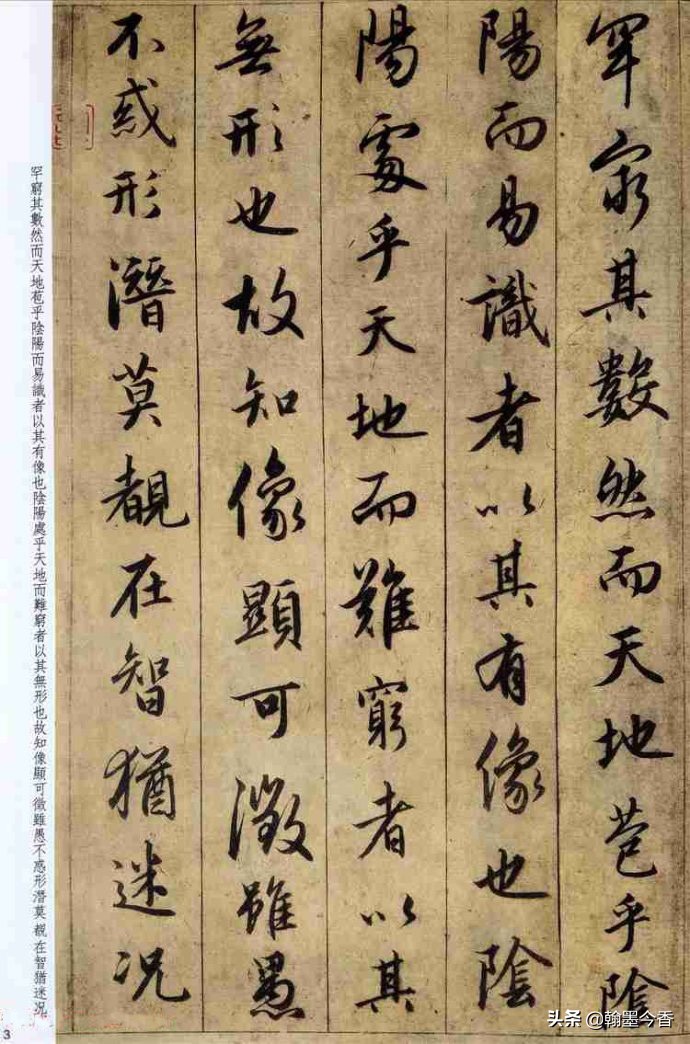 罕窮其數然而天地苞乎陰
陽而易識者以其有像也陰
陽處乎天地而難窮者以其
無形也故知像顯可徵雖愚
不惑形潛莫覩在智猶迷况
罕窮其數然而天地苞乎陰陽而易識者以其有像也陰陽處乎天地而難窮者以其無形也故知像顯可徵雖愚不惑形潛莫覩在智猶迷况
3
头条 @翰墨今香